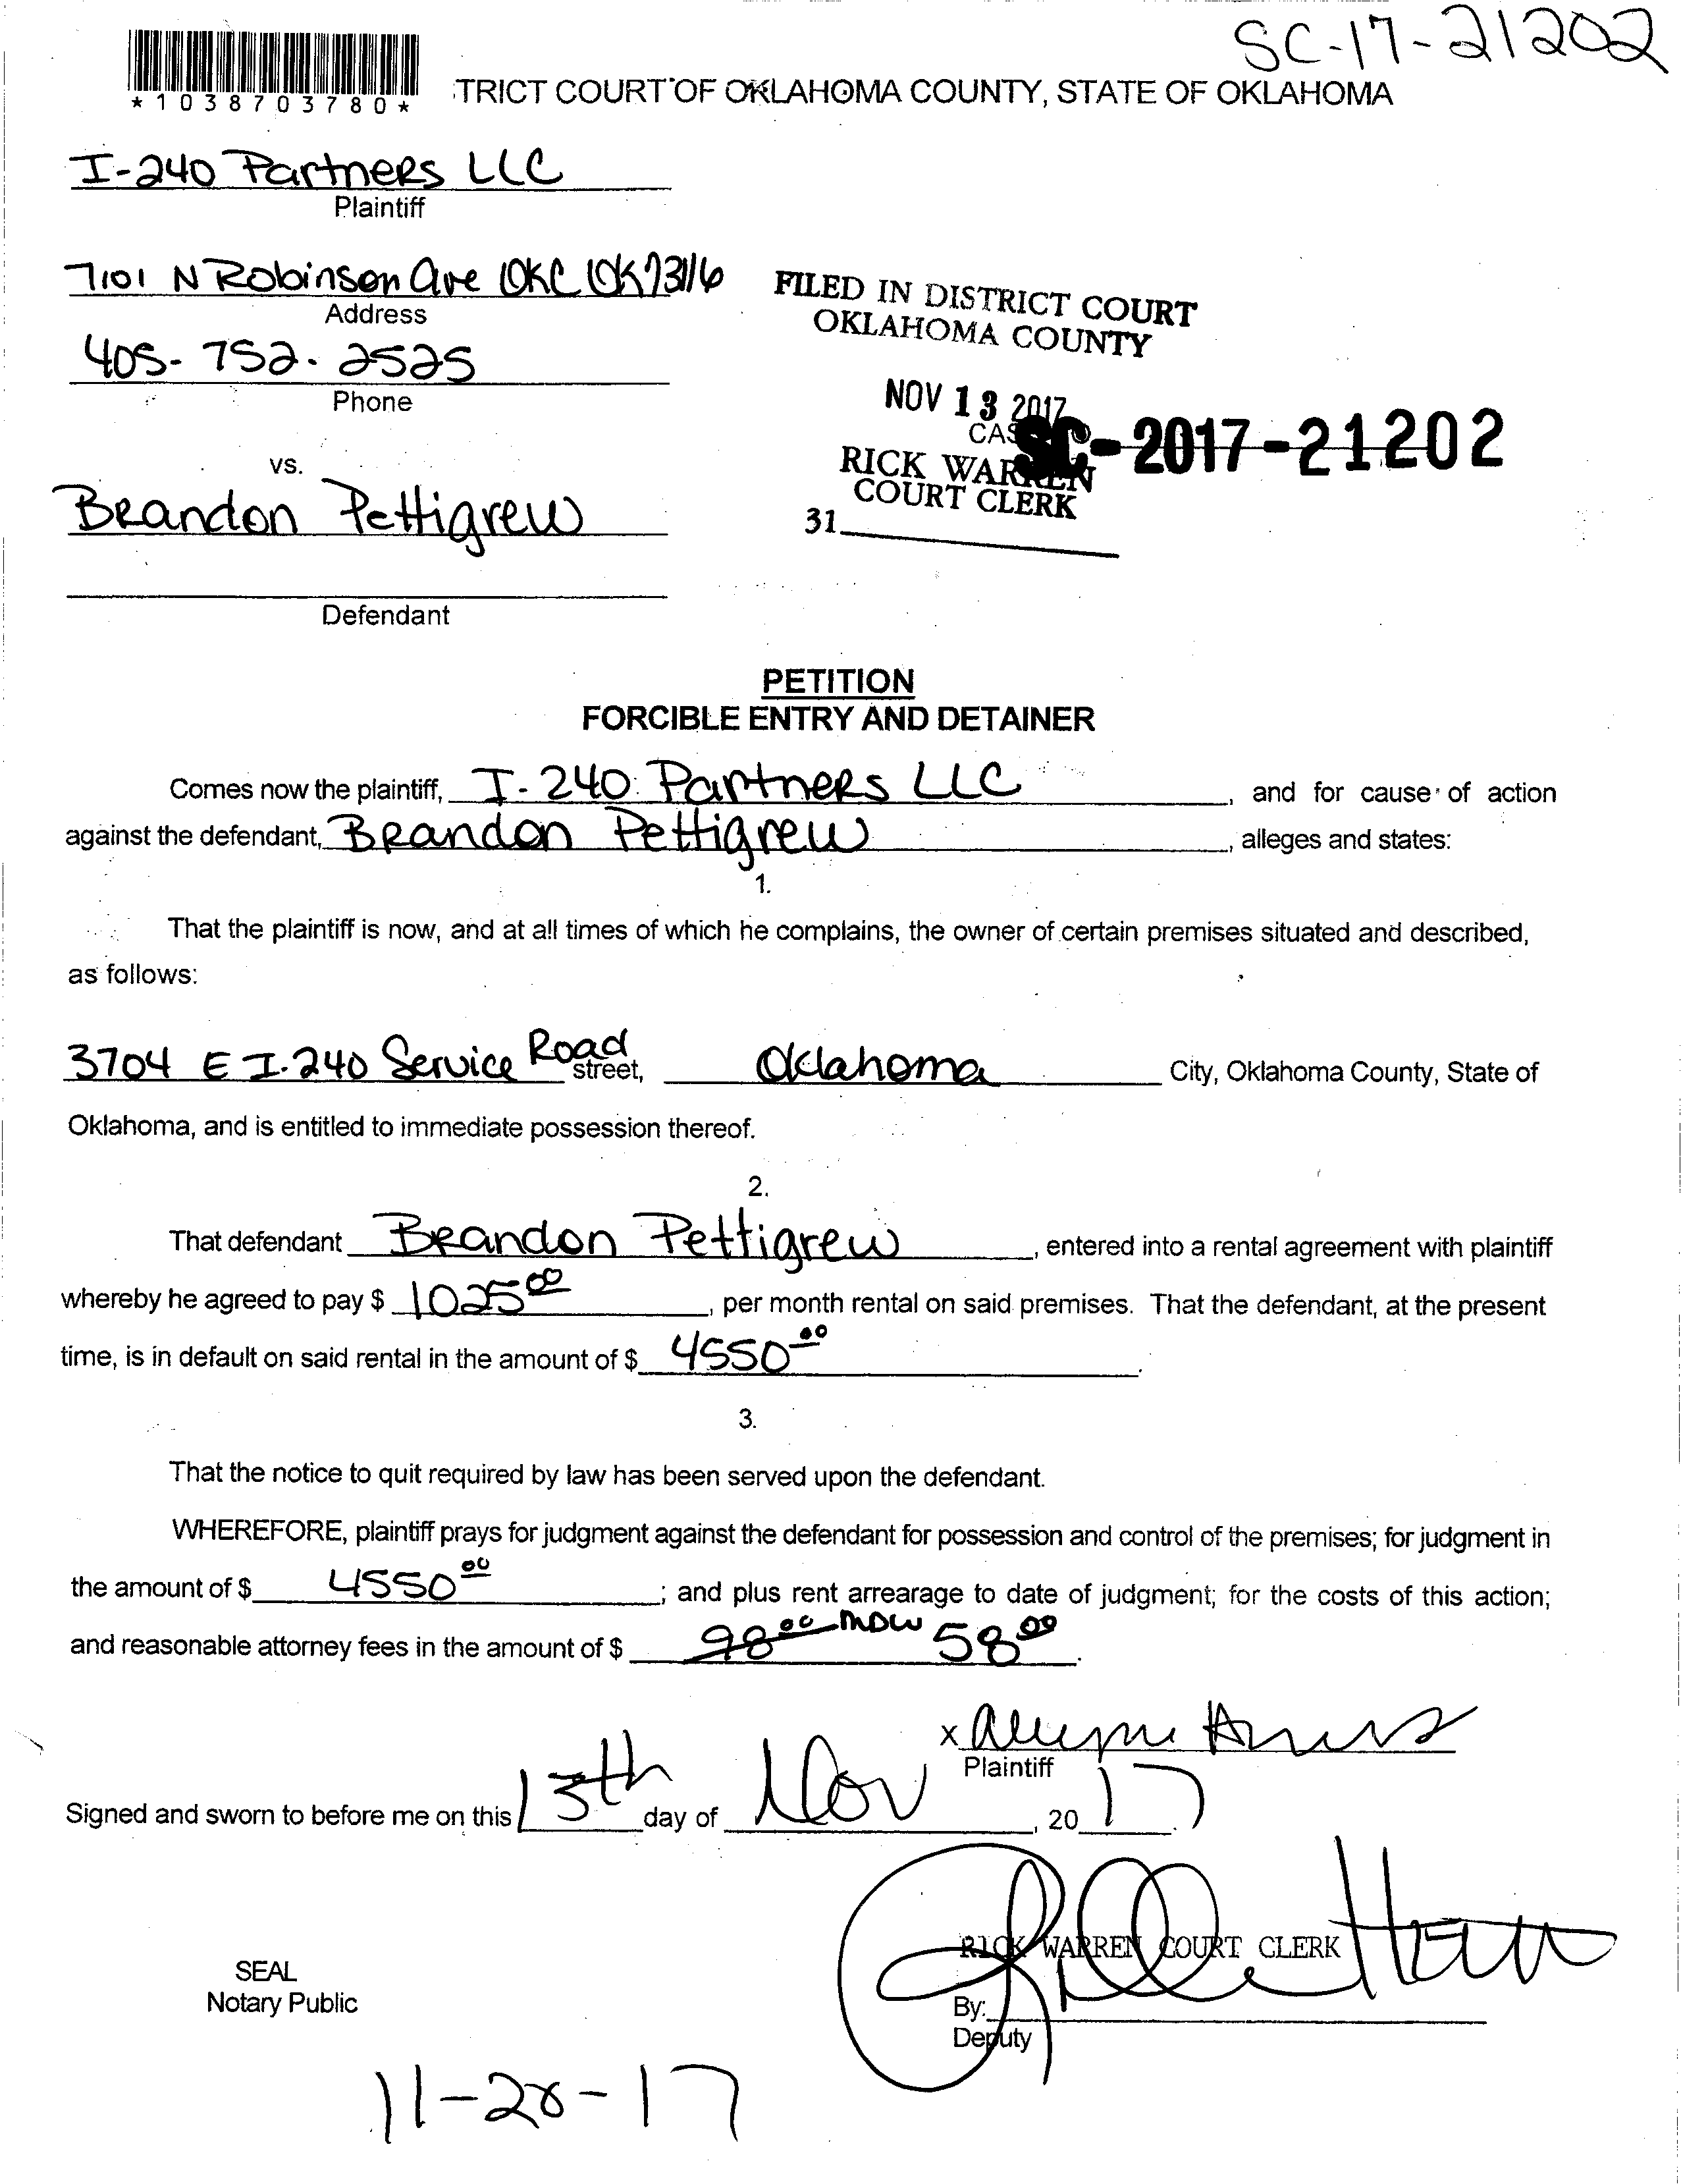 SC-17-21202
*1038703780*
TRICT COURT OF OKLAHOMA COUNTY, STATE OF OKLAHOMA
I-240 Partners LLC
Plaintiff
7101 N Robinson Ave OKC OK 73116
Address
405-752-2525
Phone
FILED IN DISTRICT COURT
OKLAHOMA COUNTY
NOV 13 2017
SC-2017-21202
RICK WARREN
COURT CLERK
31
vs.
Brandon Pettigrew
Defendant
PETITION
FORCIBLE ENTRY AND DETAINER
Comes now the plaintiff, I-240 Partners LLC, and for cause of action
against the defendant, Brandon Pettigrew, alleges and states:
1.
That the plaintiff is now, and at all times of which he complains, the owner of certain premises situated and described,
as follows:
3704 E I-240 Service Road street, Oklahoma City, Oklahoma County, State of
Oklahoma, and is entitled to immediate possession thereof.
2.
That defendant Brandon Pettigrew, entered into a rental agreement with plaintiff
whereby he agreed to pay $ 1025 00, per month rental on said premises. That the defendant, at the present
time, is in default on said rental in the amount of $ 4550 00.
3.
That the notice to quit required by law has been served upon the defendant.
WHEREFORE, plaintiff prays for judgment against the defendant for possession and control of the premises; for judgment in
the amount of $ 4550 00; and plus rent arrearage to date of judgment; for the costs of this action;
and reasonable attorney fees in the amount of $ 98 00 MDW 58 00.
x
Plaintiff
Signed and sworn to before me on this 13th day of Nov, 20 17
RICK WARREN COURT CLERK
SEAL
Notary Public
By:
Deputy
11-28-17